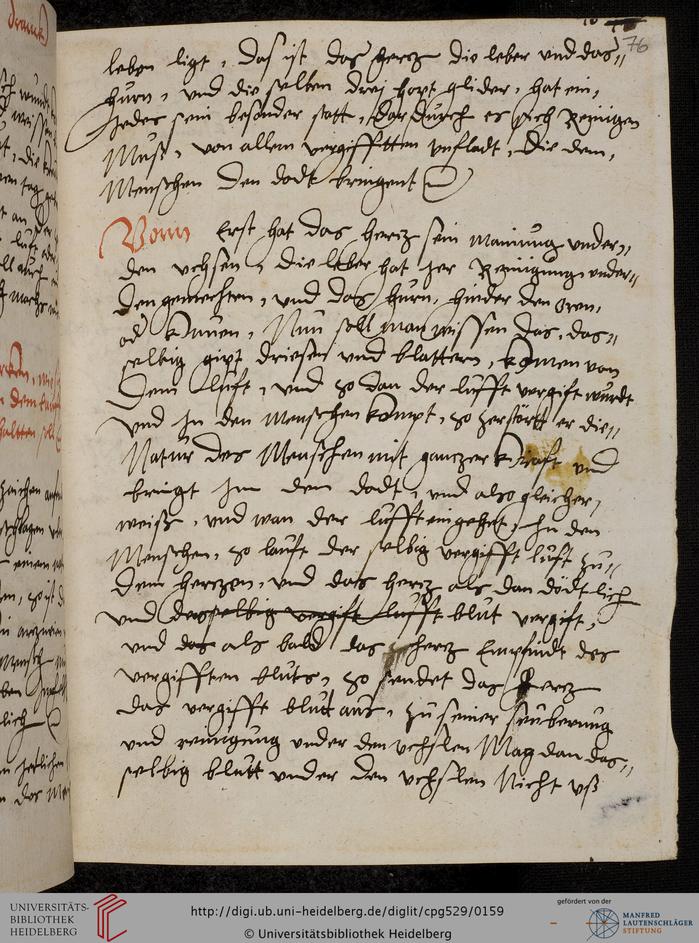 76
leben ligt, das ist das hertz die leber vnd das
hürn, vnd die selben drei hopt glider, hat ein,
Jedes sein besonder statt, dar durch es sich Reinigen
Muß, von allem vergifftten vnfladt, die dem,
Menschen den dodt bringent
Vonn Erst hat das hertz sein Mainüng vnder,,
den vchsen, die leber hat Jer Reinigüng vnder,,
den gemechten, vnd das hürn, hinder den oren,
od kinnen, Nün soll man wissen das, das,,
selbig gipt driesen vnd blattern, komen von
dem lüft, vnd so dan der lüfft vergift würdt
vnd Jn den Menschen kompt, so zerstörtt er die,,
Natür des Menschen mit gantzer krafft vnd
bringt Jm den dodt, vnd also gleicher,
weiß, vnd wan der lüfft ein gehet, Jn den
Menschen, so lauft der selbig vergifft lüft zü,,
dem hertzen, vnd das hertz als dan dödtlich
vnd dasselbig vergift lüfft blüt vergift,
vnd das als bald das hertz Empfindt des
vergifften blüts, so sendet das hertz
das vergifft blütt aus, zü seiner seüberüng
vnd reinigüng vnder den vchslen Mag dan das,,
selbig blütt vnder den vchslen Nicht vß
UNIVERSITÄTS-
BIBLIOTHEK
HEIDELBERG
http://digi.ub.uni-heidelberg.de/diglit/cpg529/0159
© Universitätsbibliothek Heidelberg
gefördert von der
MANFRED
LAUTENSCHLÄGER
STIFTUNG